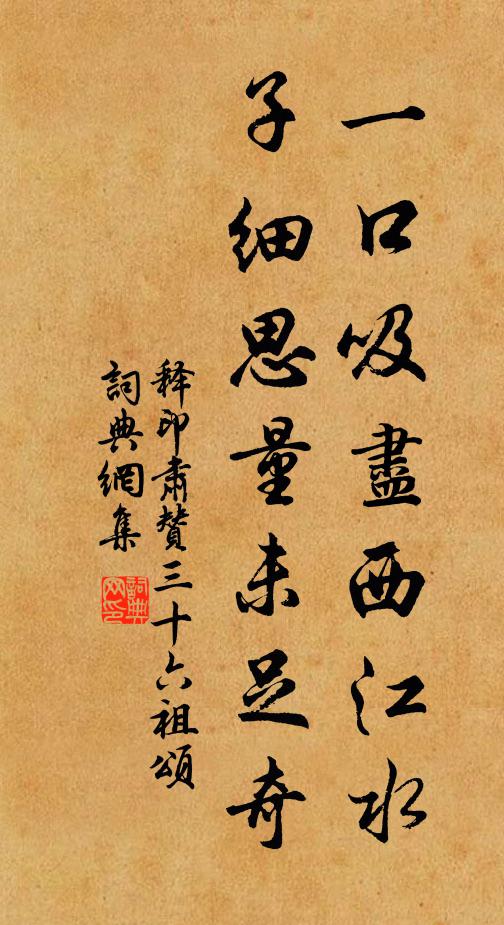 一口吸盡西江水
子細思量未足奇
释印肅贊三十六祖頌
詞典網集
詞典網印